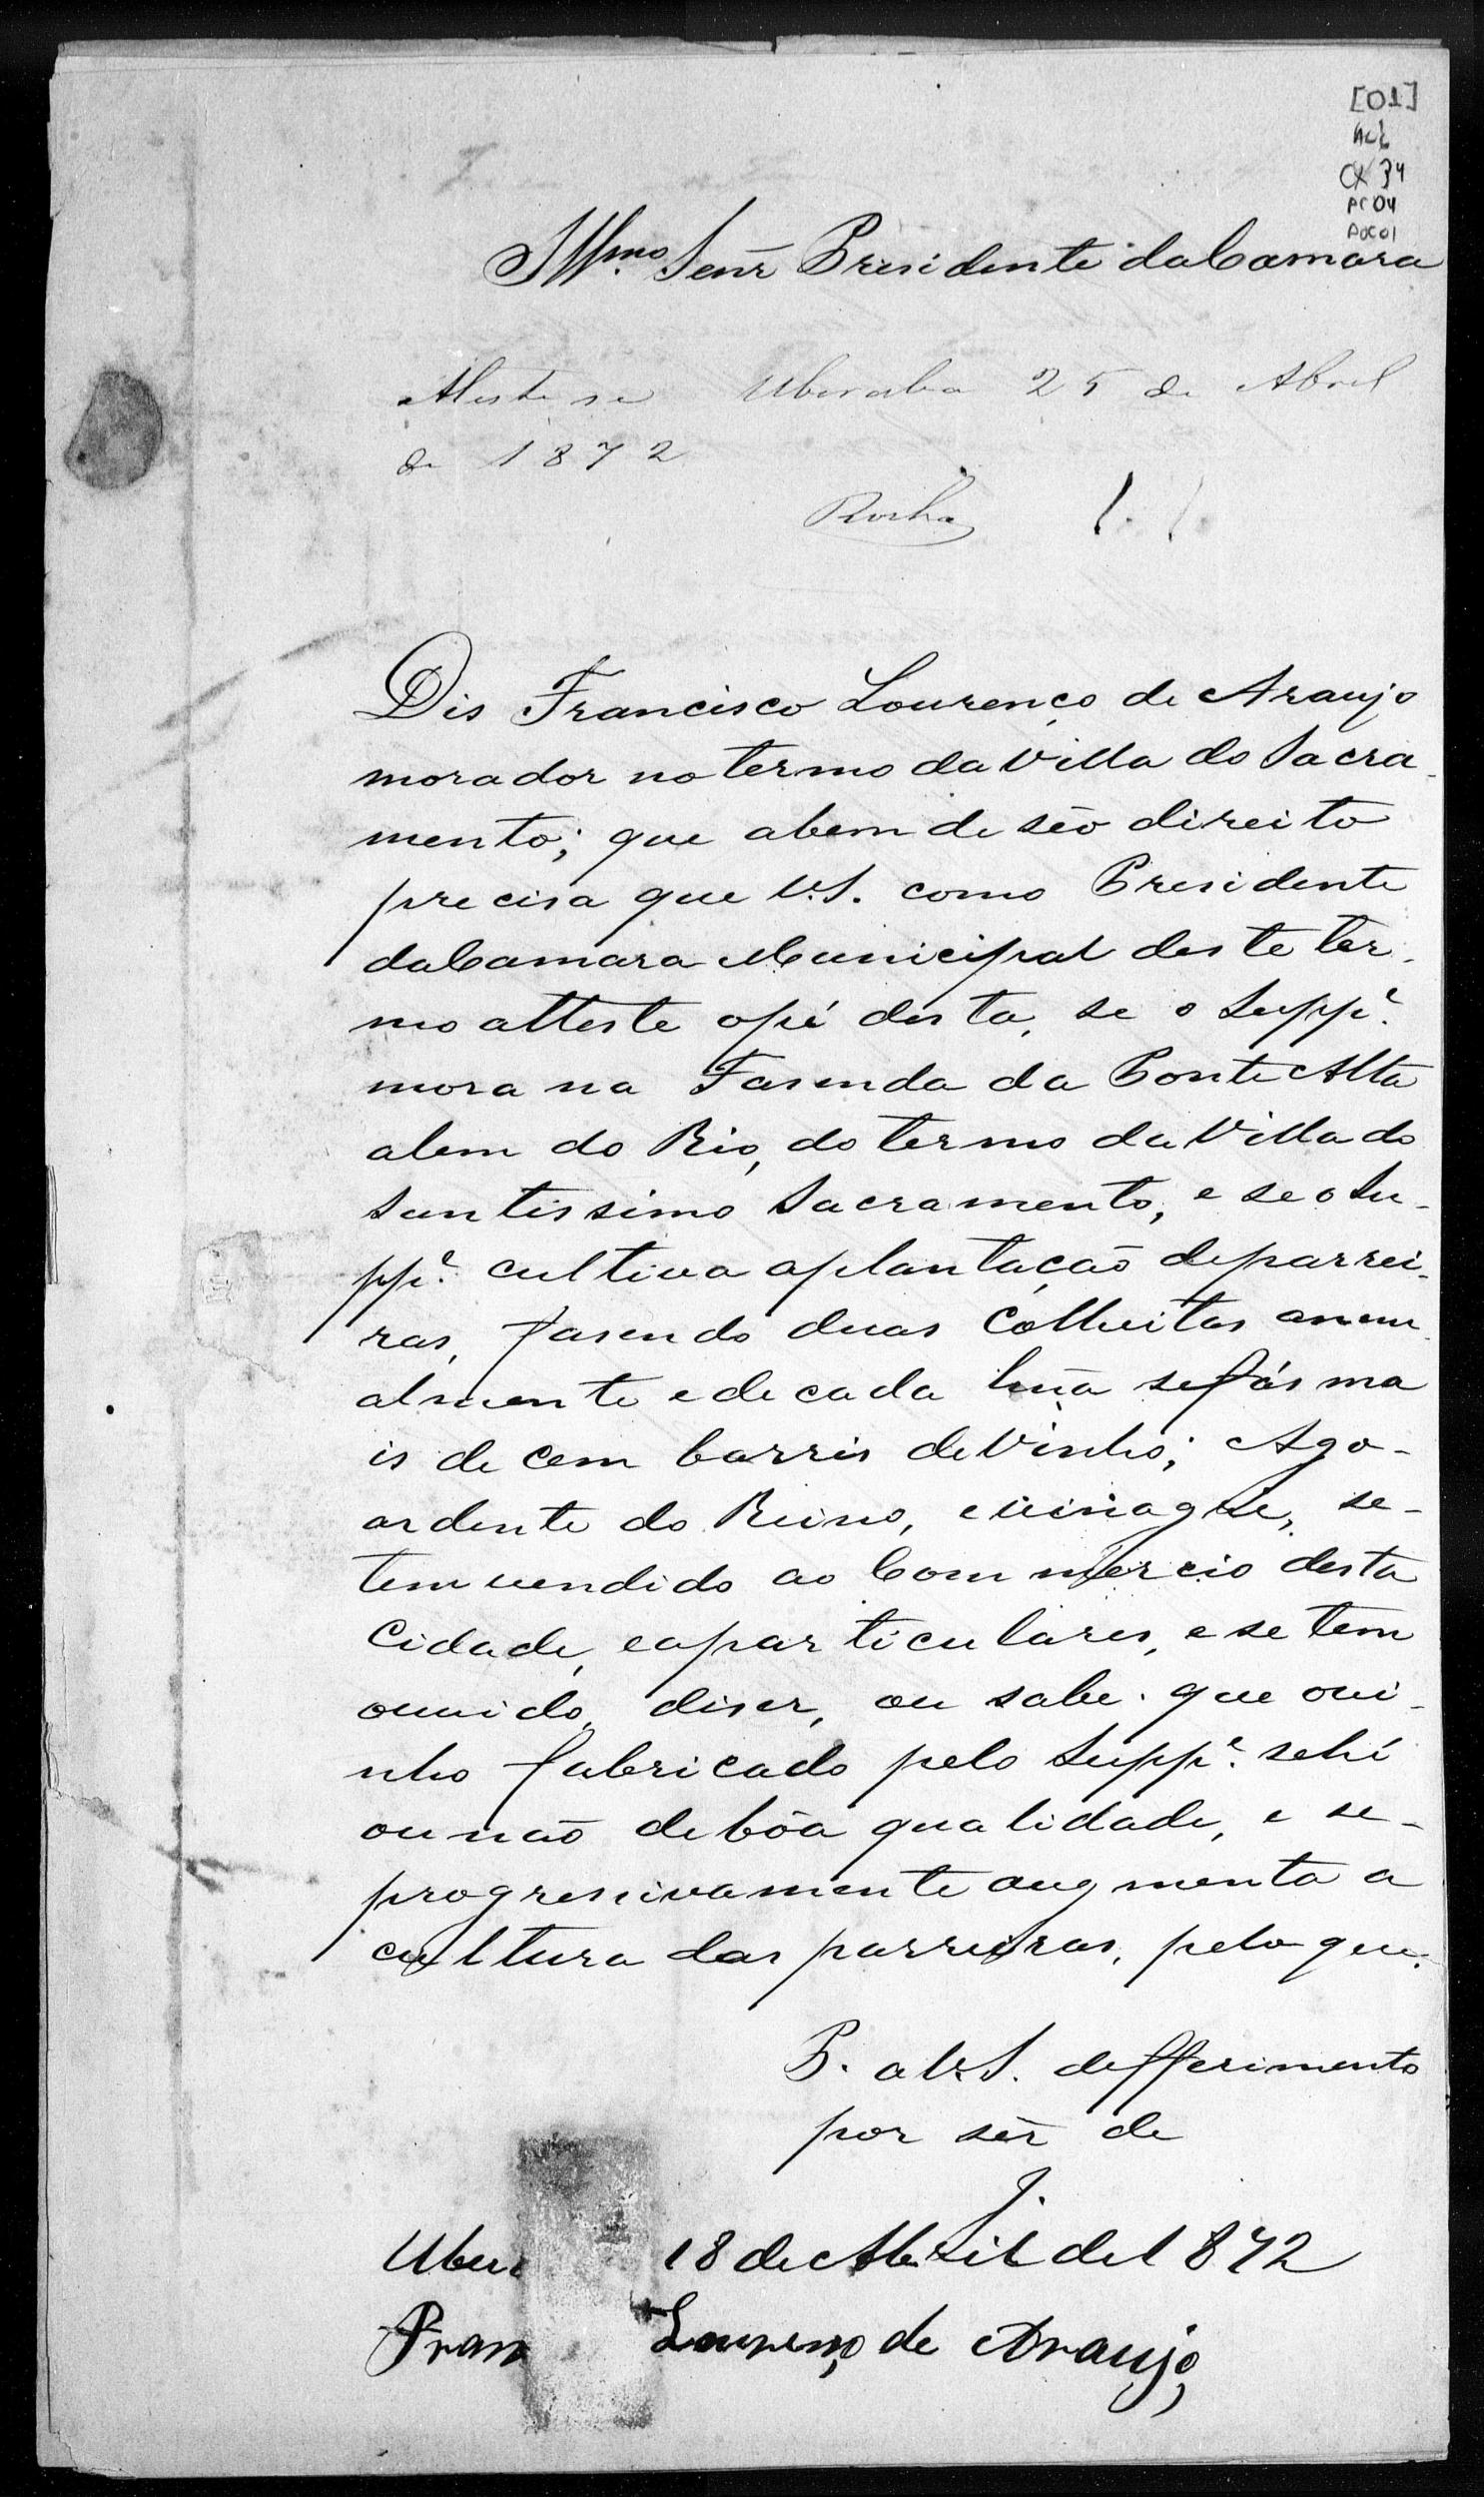 [01]
CX 34
PC 04
DOC 01
Illmo. Senr Presidente da Camara
Atteste se Uberaba 25 de Abril
de 1872
Rocha
Dis Francisco Lourenço de Araujo
morador no termo da Villa do Sacra-
mento; que abem de sêo direito
precisa que V.S. como Presidente
da Camara Municipal deste ter-
mo atteste opé desta, se o Suppe.
mora na Fasenda da Ponte Alta
alem do Rio, do termo da Villa do
Santissimo Sacramento, e se o Su-
ppe. cultiva aplantação deparrei-
ras, fasendo duas Colheitas annu-
almente ede cada huã sefás ma
is de cem barris deVinho; Ago-
ardente do Reino, evinagre, se-
tem vendido ao Commercio desta
Cidade, eaparticulares, e se tem
ouvido, diser, ou sabe. que ovi-
nho fabricado pelo Suppe. sehé
ounão debôa qualidade, e se-
progresivamente augmenta a
cultura das parreiras, pelo que.
P. a V.S. defferimento
por sêr de
J.
18 de Abril de 1872
Lourenço de Araujo